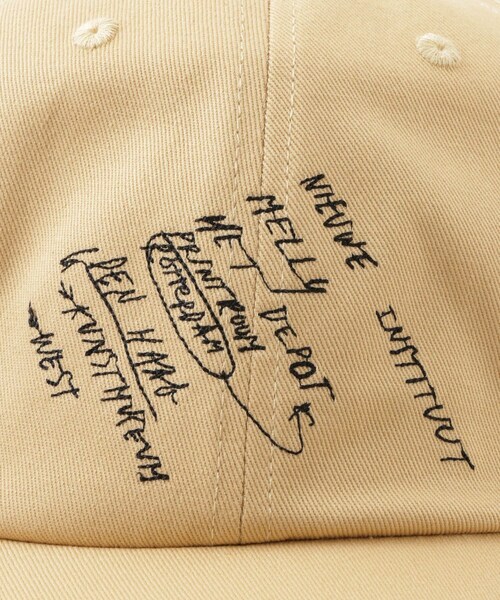 NIEUWE
INSTITUUT
MELLY
HET DEPOT
PRINTROOM
ROTTERDAM
DEN HAAG
KUNSTMUSEUM
WEST